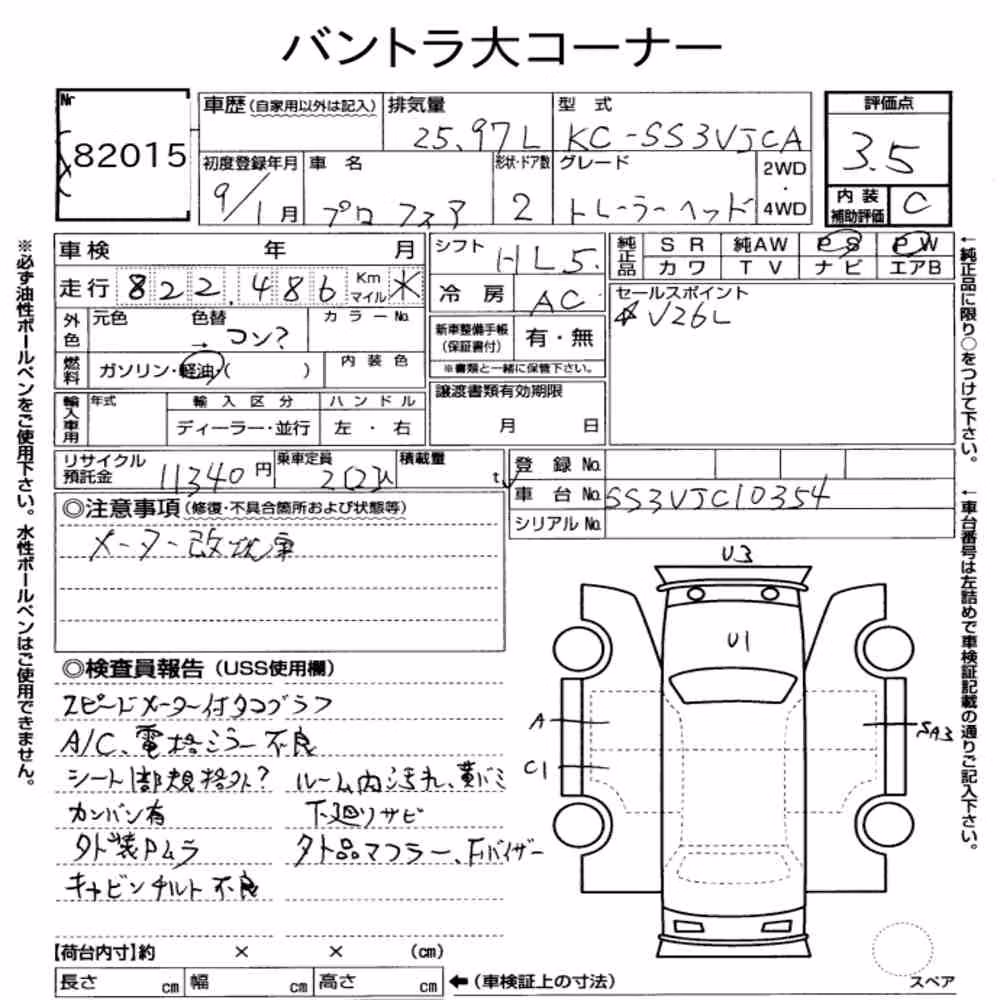 バントラ大コーナー
Nr 82015
車歴(自家用以外は記入) 排気量 25.97L 型式 KC-SS3VJCA 評価点 3.5
初度登録年月 9/1月 車名 プロフィア 形状・ドア数 2 グレード トレーラーヘッド 2WD・4WD 内装補助評価 C
車検 年 月 シフト HL5. 純正品 SR 純AW PS PW
カワ TV ナビ エアB
走行 822.486 Km マイル * 冷房 AC セールスポイント
☆V26L
外色 元色 色替 → コン? カラーNo.
新車整備手帳(保証書付) 有・無
※書類と一緒に保管下さい。
燃料 ガソリン・軽油・( ) 内装色
譲渡書類有効期限 月 日
輸入車用 年式 輸入区分 ハンドル
ディーラー・並行 左・右
リサイクル預託金 11340円 乗車定員 2(2)人 積載量 t
登録No.
車台No. SS3VJC10354
シリアルNo.
◎注意事項(修復・不具合箇所および状態等)
メーター改ざん車
◎検査員報告(USS使用欄)
スピードメーター付タコグラフ
A/C、電格ミラー不良
シート1部規格外? ルーム内汚れ、黄バミ
カンバン有 下廻りサビ
外装Pムラ 外品マフラー、Fバイザー
キャビンチルト不良
【荷台内寸】約 × × (cm)
長さ cm 幅 cm 高さ cm ←(車検証上の寸法)
U3
U1
A
SA3
C1
スペア
※必ず油性ボールペンをご使用下さい。水性ボールペンはご使用できません。
←純正品に限り○をつけて下さい。
←車台番号は左詰めで車検証記載の通りご記入下さい。